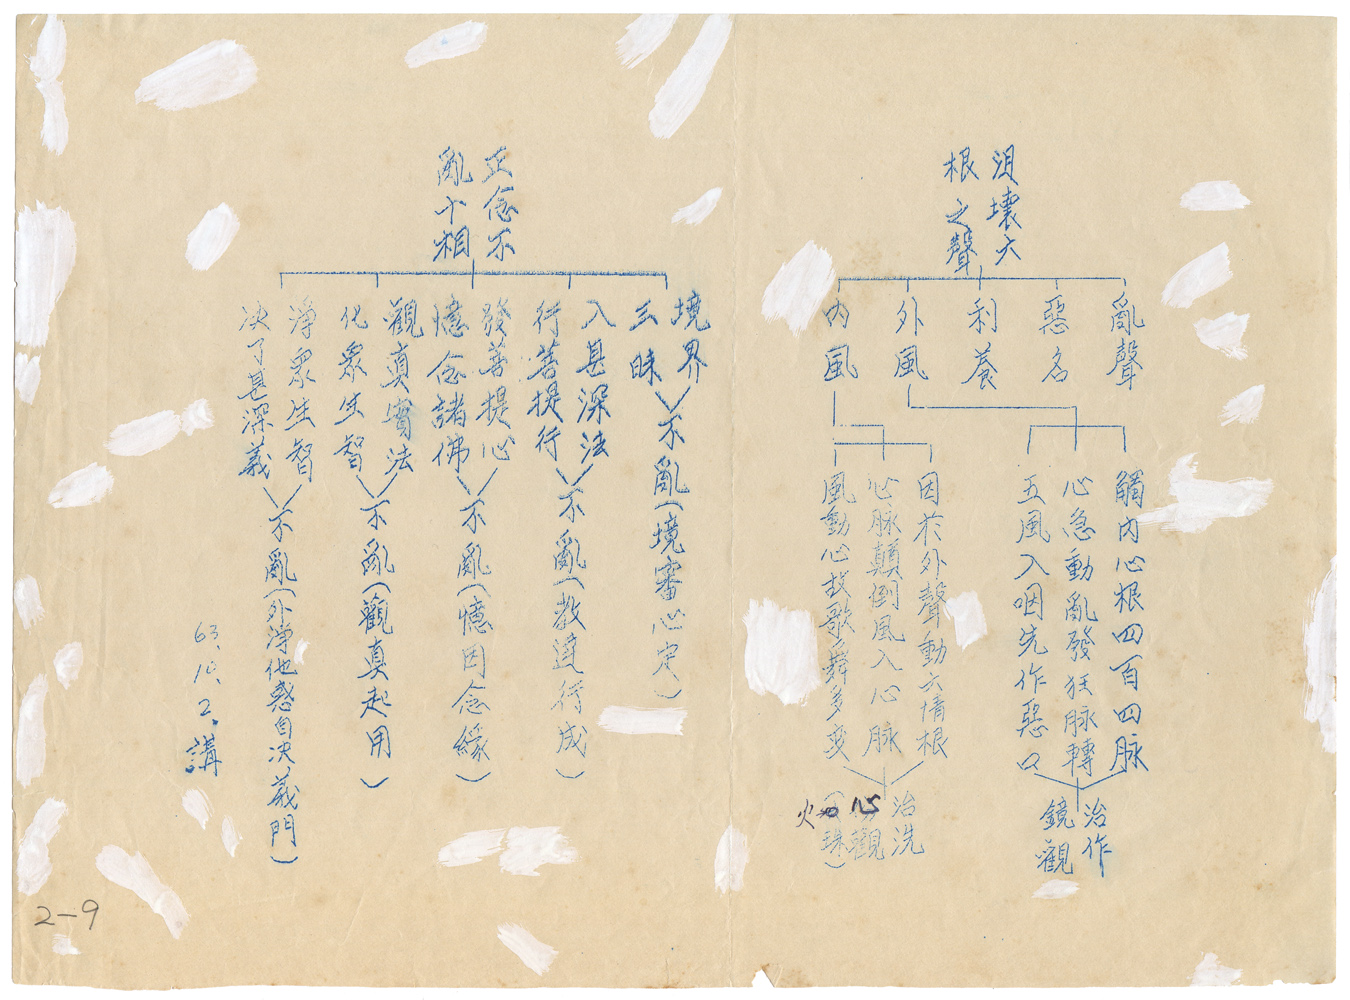 沮壞六
根之聲
亂聲
惡名
利養
外風
內風
觸內心根四百四脉
心急動亂發狂脉轉
五風入咽先作惡口
治作
鏡觀
因於外聲動六情根
心脉顛倒風入心脉
風動心故歌舞多变
治洗
心觀
火
珠)
正念不
亂十相
境界
三昧
不亂(境審心定)
入甚深法
行菩提行
不亂(教達行成)
發菩提心
憶念諸佛
不亂(憶因念緣)
觀真實法
化眾生智
不亂(觀真起用)
淨眾生智
决了甚深義
不亂(外淨他惑自决義門)
63.10.2.講
2-9